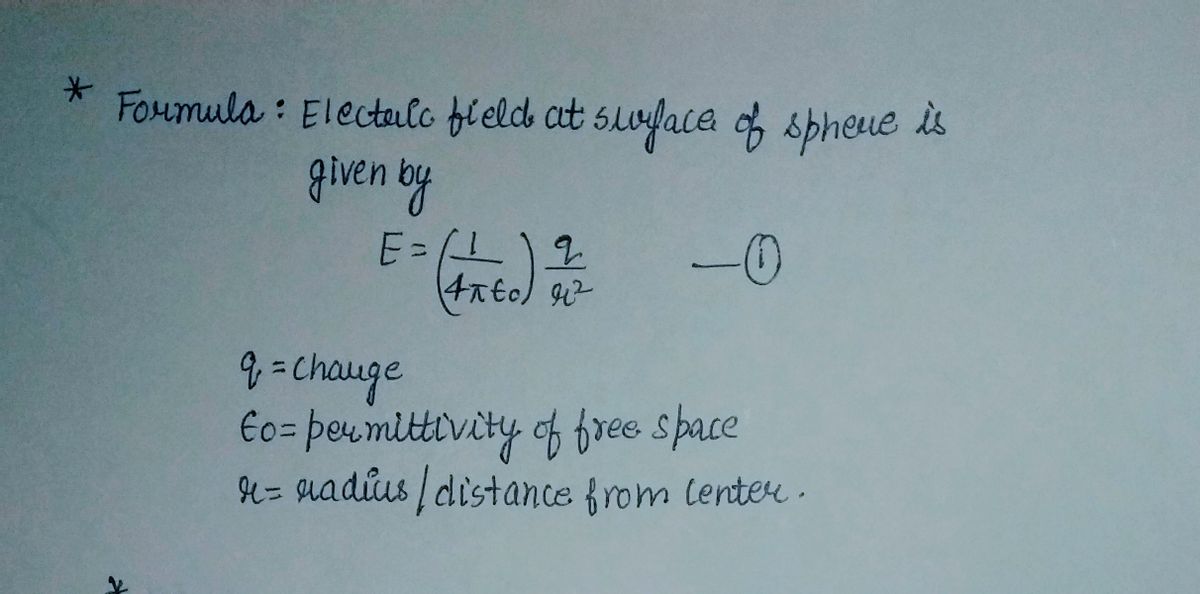 * Formula : Electric field at surface of sphere is
given by
E = (1/4πϵ0) q/r² —①
q = charge
ϵ0 = permittivity of free space
r = radius / distance from center.
*